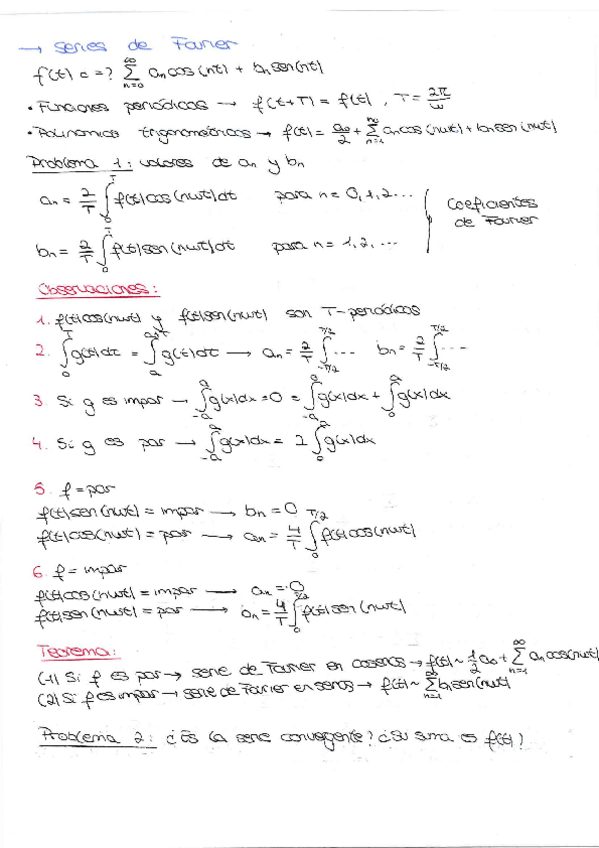 → Series de Fourier
f(t) c =? ∑_{n=0}^{∞} an cos(nt) + bn sen(nt)
• Funciones periódicas → f(t+T) = f(t), T = 2π/ω
• Polinomios trigonométricos → f(t) = a0/2 + ∑_{n=1}^{∞} an cos(nωt) + bn sen(nωt)
Problema 1: valores de an y bn
an = 2/T ∫_0^T f(t)cos(nωt)dt para n = 0,1,2...
bn = 2/T ∫_0^T f(t)sen(nωt)dt para n = 1,2,...
Coeficientes
de Fourier
Observaciones:
1. f(t)cos(nωt) y f(t)sen(nωt) son T-periódicas
2. ∫_0^T g(t)dt = ∫_a^{a+T} g(t)dt → an = 2/T ∫_{-T/2}^{T/2} ... bn = 2/T ∫_{-T/2}^{T/2} ...
3. Si g es impar → ∫_{-a}^{a} g(x)dx = 0 = ∫_{-a}^{0} g(x)dx + ∫_0^a g(x)dx
4. Si g es par → ∫_{-a}^{a} g(x)dx = 2 ∫_0^a g(x)dx
5. f = par
f(t)sen(nωt) = impar → bn = 0
f(t)cos(nωt) = par → an = 4/T ∫_0^{T/2} f(t)cos(nωt)
6. f = impar
f(t)cos(nωt) = impar → an = 0
f(t)sen(nωt) = par → bn = 4/T ∫_0^{T/2} f(t)sen(nωt)
Teorema:
(1) Si f es par → serie de Fourier en cosenos → f(t) ~ 1/2 a0 + ∑_{n=1}^{∞} an cos(nωt)
(2) Si f es impar → serie de Fourier en senos → f(t) ~ ∑_{n=1}^{∞} bn sen(nωt)
Problema 2: ¿Es la serie convergente? ¿Su suma es f(t)?